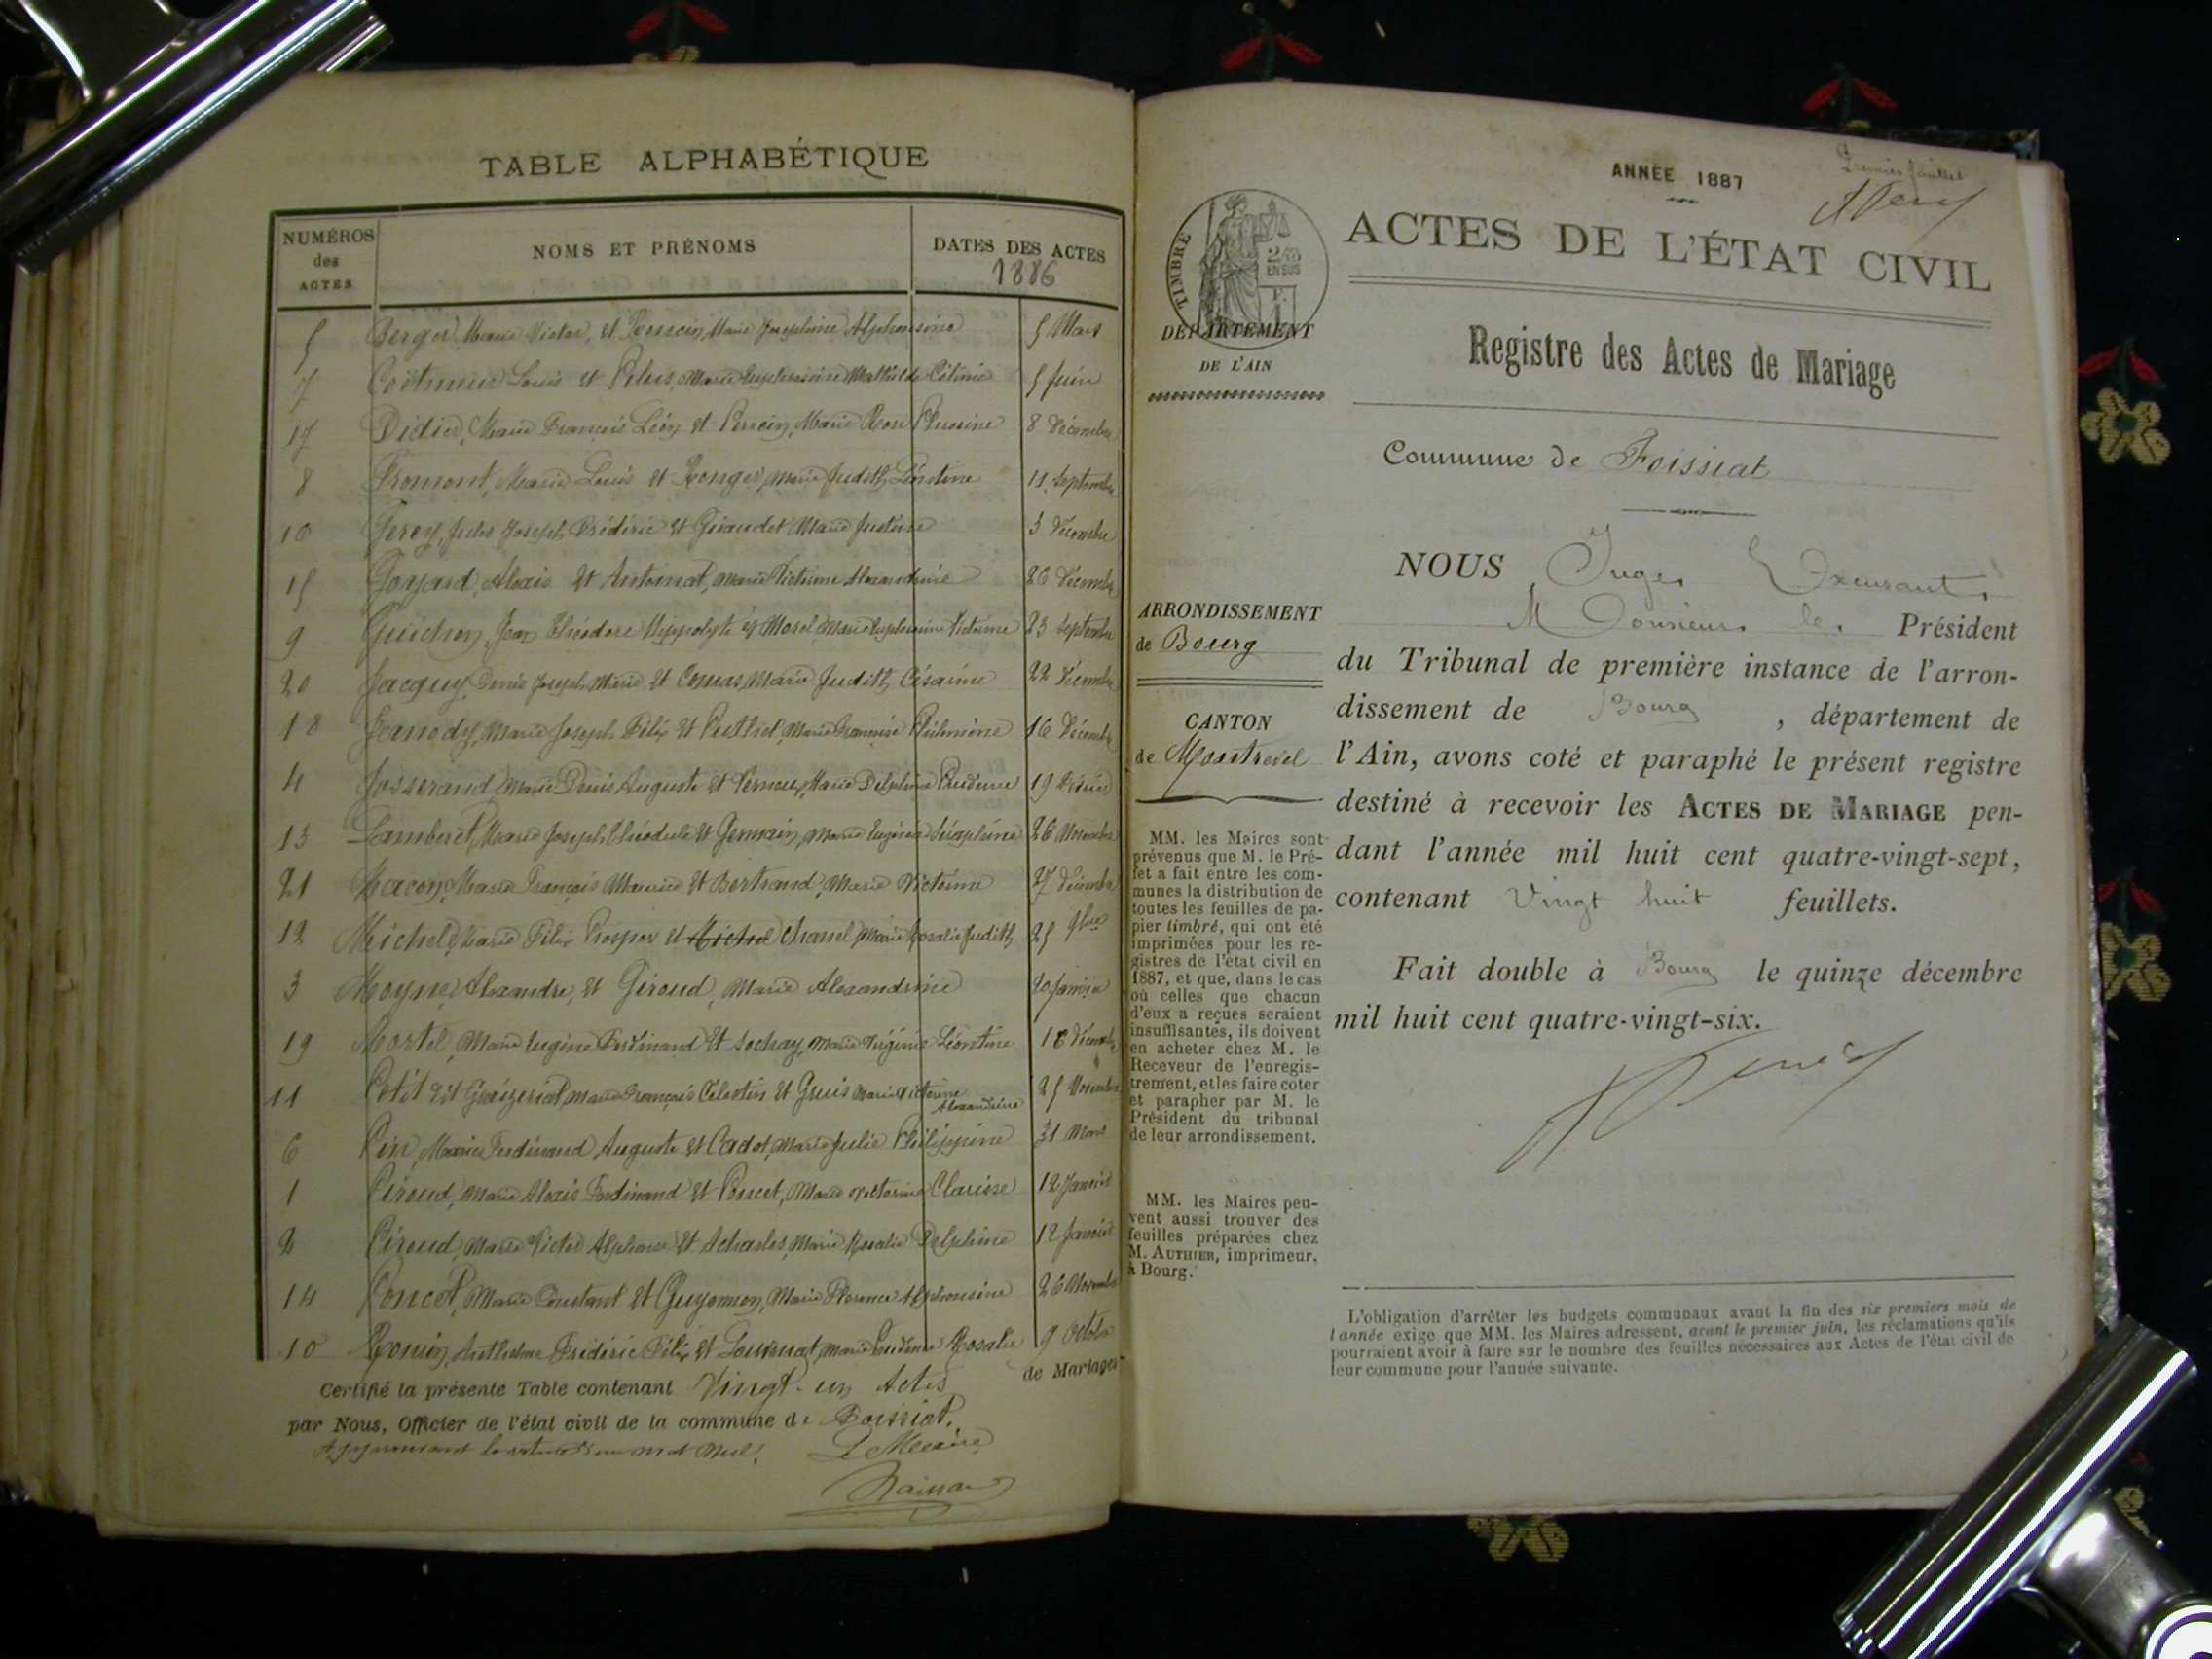 TABLE ALPHABÉTIQUE
NUMÉROS
des
ACTES
NOMS ET PRÉNOMS
DATES DES ACTES
1886
5 Berger, Marie Victor, et Marie Joséphine Alphonsine 5 Mars
7 Louis et Marie Mathilde 5 Juin
17 Didier, Marie François Léon et Perrin, Marie Rose 8 Décembre
8 Fromont, Marie Louis et Marie Judith Léontine 11 Septembre
16 Ferey, Jules Joseph Frédéric et Giraudet Marie Justine 3 Décembre
15 Goyard, Alexis et Antoinat, Marie Victorine Alexandrine 26
9 Guichon, Jean Théodore Hippolyte et Morel Marie Euphrosine Victorine 23 Septembre
20 Jacquy, Denis Joseph Marie et Comas, Marie Judith Césarine 22 Décembre
18 Janody, Marie Joseph Félix et Marie Françoise Philomène 16 Décembre
4 Josserand, Marie Denis Auguste et Marie Delphine Prudence 19 Février
13 Lamberet, Marie Joseph Théodule et Germain, Marie Eugénie Séraphine 26 Novembre
21 Macon, Marie François Maurice et Bertrand, Marie Victorine 27 Décembre
12 Michel, Marie Félix Prosper et Michel Chanel, Marie Rosalie Judith 25 9bre
3 Moyne, Alexandre, et Giroud, Marie Alexandrine 20 Janvier
19 Mortel, Marie Eugène Ferdinand et Sochay, Marie Virginie Léontine 18 Décembre
11 Petit dit Marie François Célestin et Marie Victorine Alexandrine 25 Novembre
6 Pin, Marie Ferdinand Auguste et Cadot, Marie Julie Philippine 31 Mars
1 Piroud, Marie Alexis Ferdinand et Poncet, Marie Victorine Clarisse 12 Janvier
2 Piroud, Marie Victor Alphonse et Acharles, Marie Rosalie Delphine 12 Janvier
14 Poncet, Marie Constant et Guyonnon, Marie Florence Alphonsine 26 Novembre
10 Romin, Anthelme Frédéric Félix et Marie Prudence Rosalie 9 Octobre
Certifié la présente Table contenant Vingt-un Actes de Mariages
par Nous, Officier de l'état civil de la commune de Foissiat.
Le Maire
ANNÉE 1887
Premier feuillet
TIMBRE
EN SUS
ACTES DE L'ÉTAT CIVIL
DÉPARTEMENT
DE L'AIN
Registre des Actes de Mariage
Commune de Foissiat
ARRONDISSEMENT
de Bourg
CANTON
de Montrevel
MM. les Maires sont
prévenus que M. le Pré-
fet a fait entre les com-
munes la distribution de
toutes les feuilles de pa-
pier timbré, qui ont été
imprimées pour les re-
gistres de l'état civil en
1887, et que, dans le cas
où celles que chacun
d'eux a reçues seraient
insuffisantes, ils doivent
en acheter chez M. le
Receveur de l'enregis-
trement, et les faire coter
et parapher par M. le
Président du tribunal
de leur arrondissement.
MM. les Maires peu-
vent aussi trouver des
feuilles préparées chez
M. AUTHIER, imprimeur,
à Bourg.
NOUS Juge
Monsieur le Président
du Tribunal de première instance de l'arron-
dissement de Bourg, département de
l'Ain, avons coté et paraphé le présent registre
destiné à recevoir les ACTES DE MARIAGE pen-
dant l'année mil huit cent quatre-vingt-sept,
contenant Vingt huit feuillets.
Fait double à Bourg le quinze décembre
mil huit cent quatre-vingt-six.
L'obligation d'arrêter les budgets communaux avant la fin des six premiers mois de
l'année exige que MM. les Maires adressent, avant le premier juin, les réclamations qu'ils
pourraient avoir à faire sur le nombre des feuilles nécessaires aux Actes de l'état civil de
leur commune pour l'année suivante.